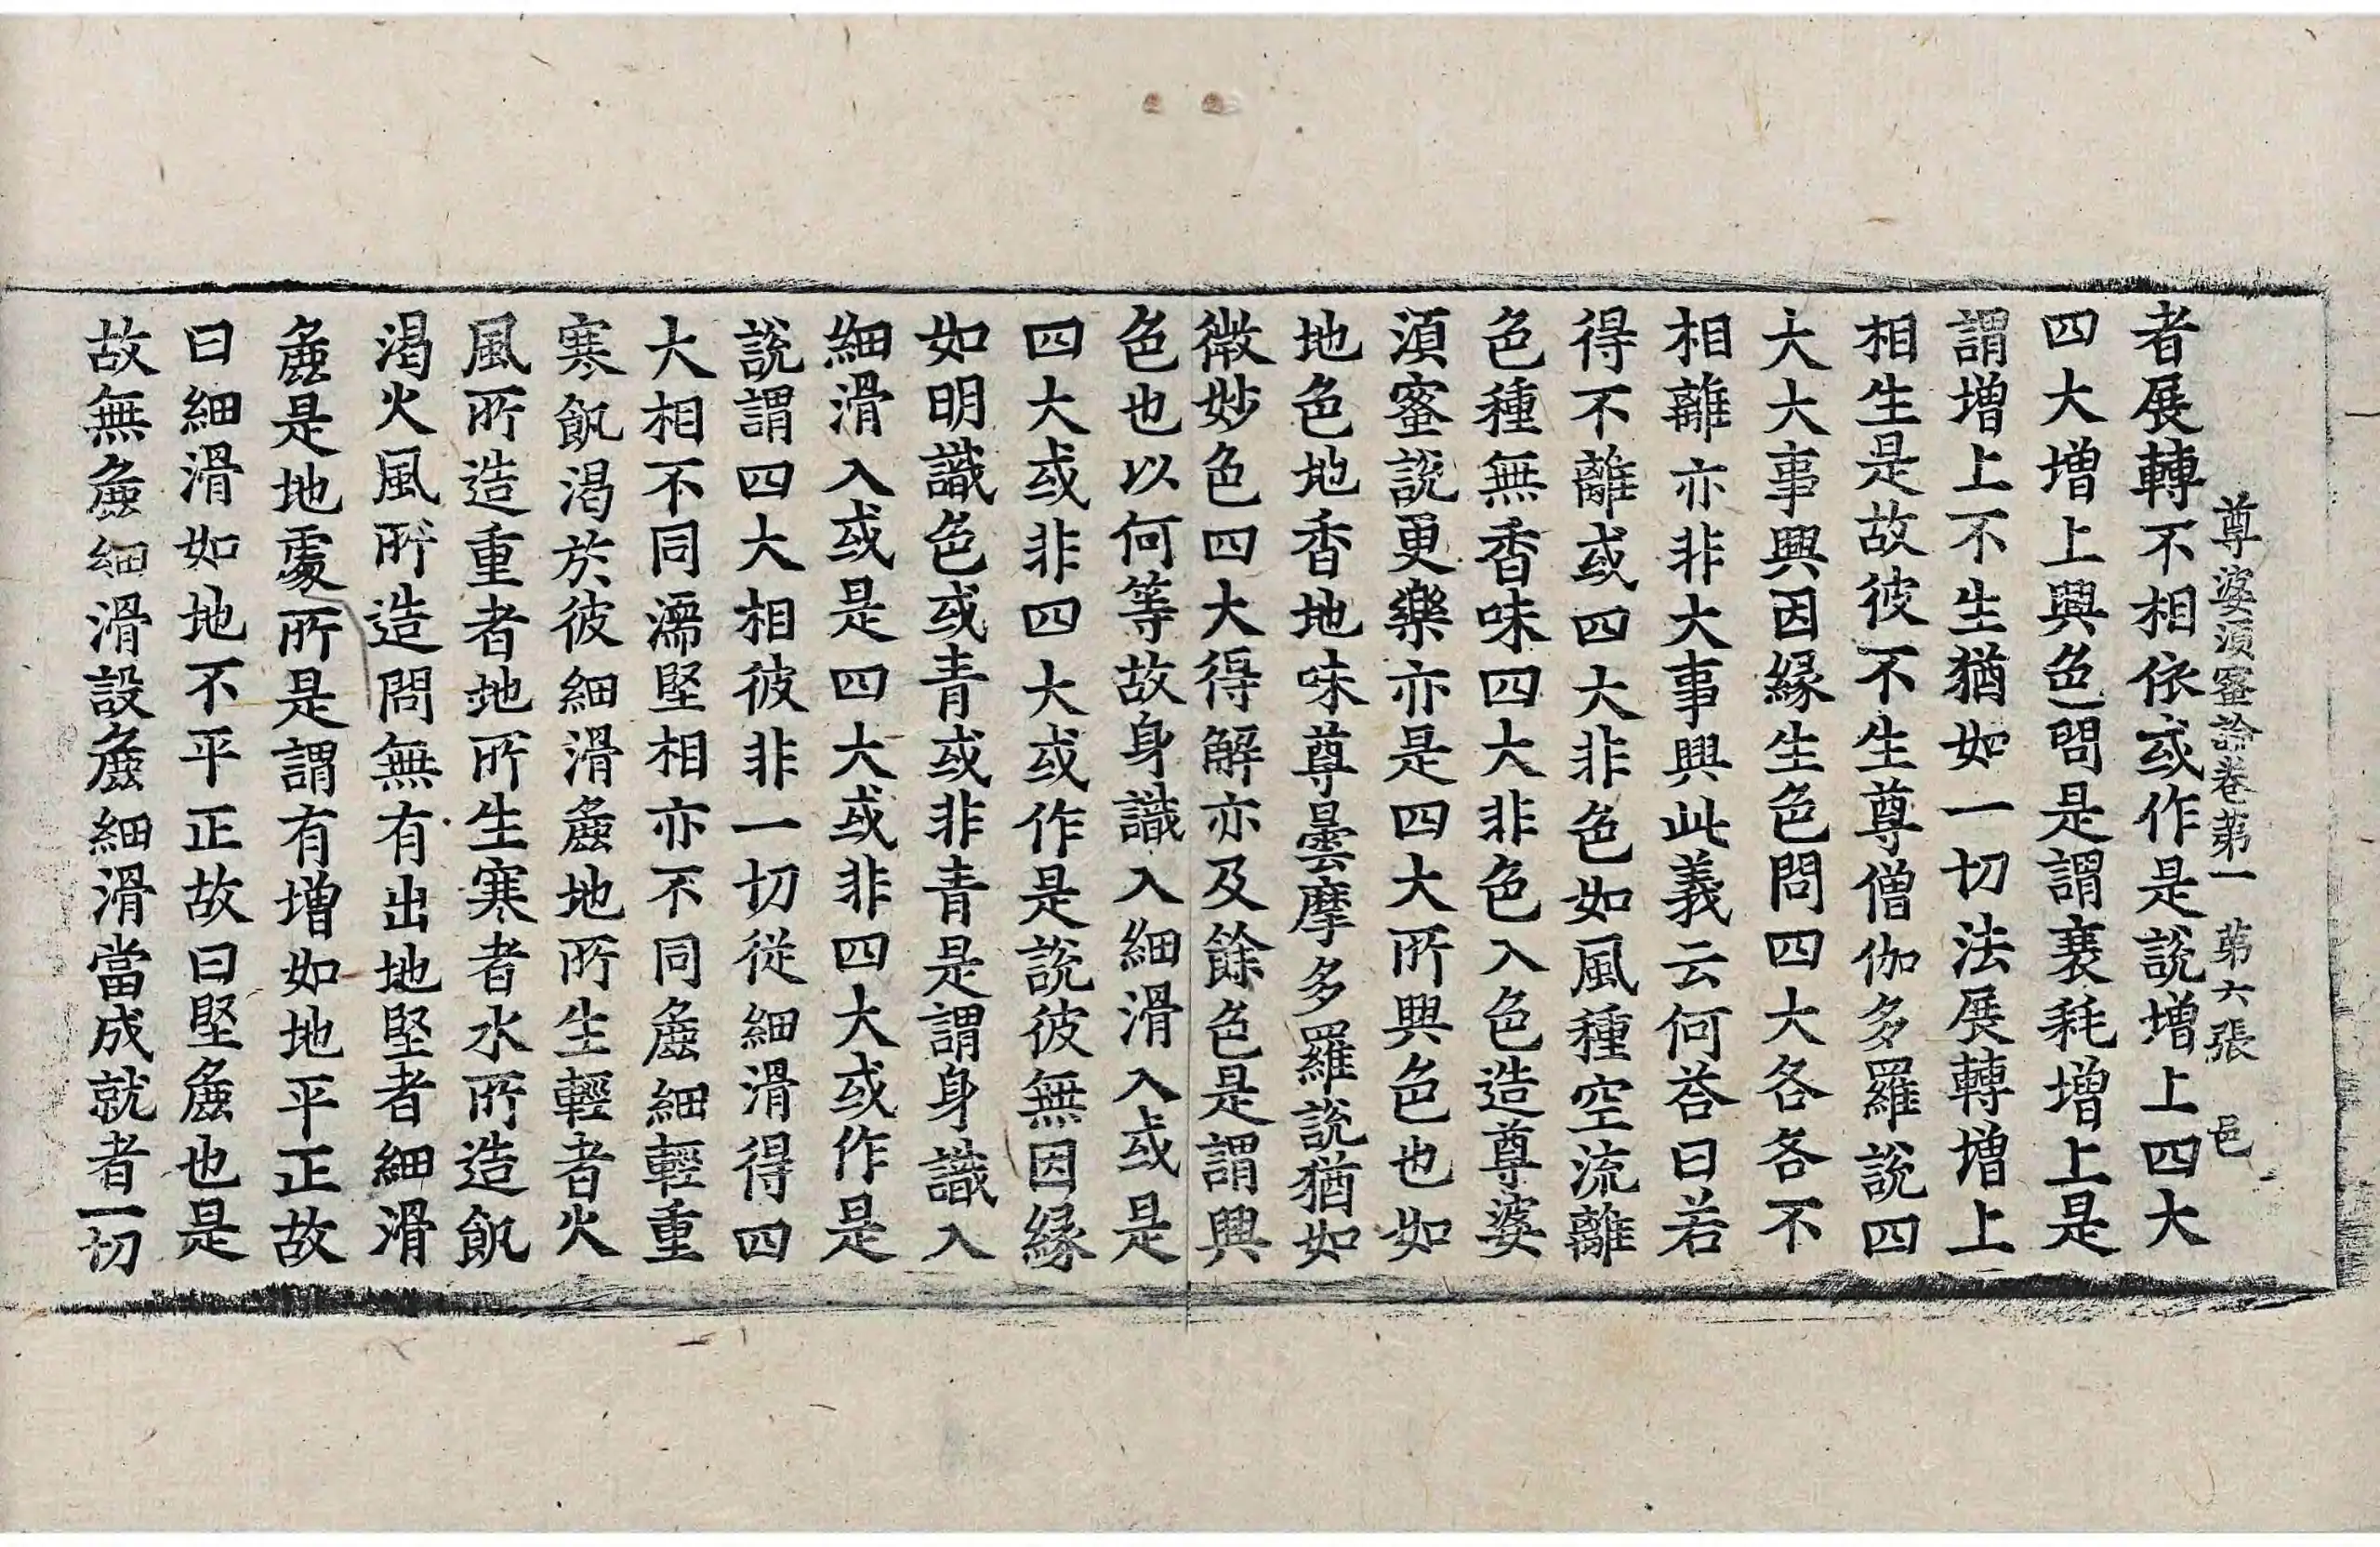 尊婆須蜜論卷第一　第六張　邑
者展轉不相依或作是説增上四大
四大增上興色問是謂衰耗增上是
謂增上不生猶如一切法展轉增上
相生是故彼不生尊僧伽多羅説四
大大事興因縁生色問四大各各不
相離亦非大事興此義云何荅曰若
得不離或四大非色如風種空流離
色種無香味四大非色入色造尊婆
須蜜説更樂亦是四大所興色也如
地色地香地味尊曇摩多羅説猶如
微妙色四大得解亦及餘色是謂興
色也以何等故身識入細滑入或是
四大或非四大或作是説彼無因縁
如明識色或青或非青是謂身識入
細滑入或是四大或非四大或作是
説謂四大相彼非一切從細滑得四
大相不同濡堅相亦不同麁細輕重
寒飢渴於彼細滑麁地所生輕者火
風所造重者地所生寒者水所造飢
渴火風所造問無有出地堅者細滑
麁是地處所是謂有增如地平正故
曰細滑如地不平正故曰堅麁也是
故無麁細滑設麁細滑當成就者一切